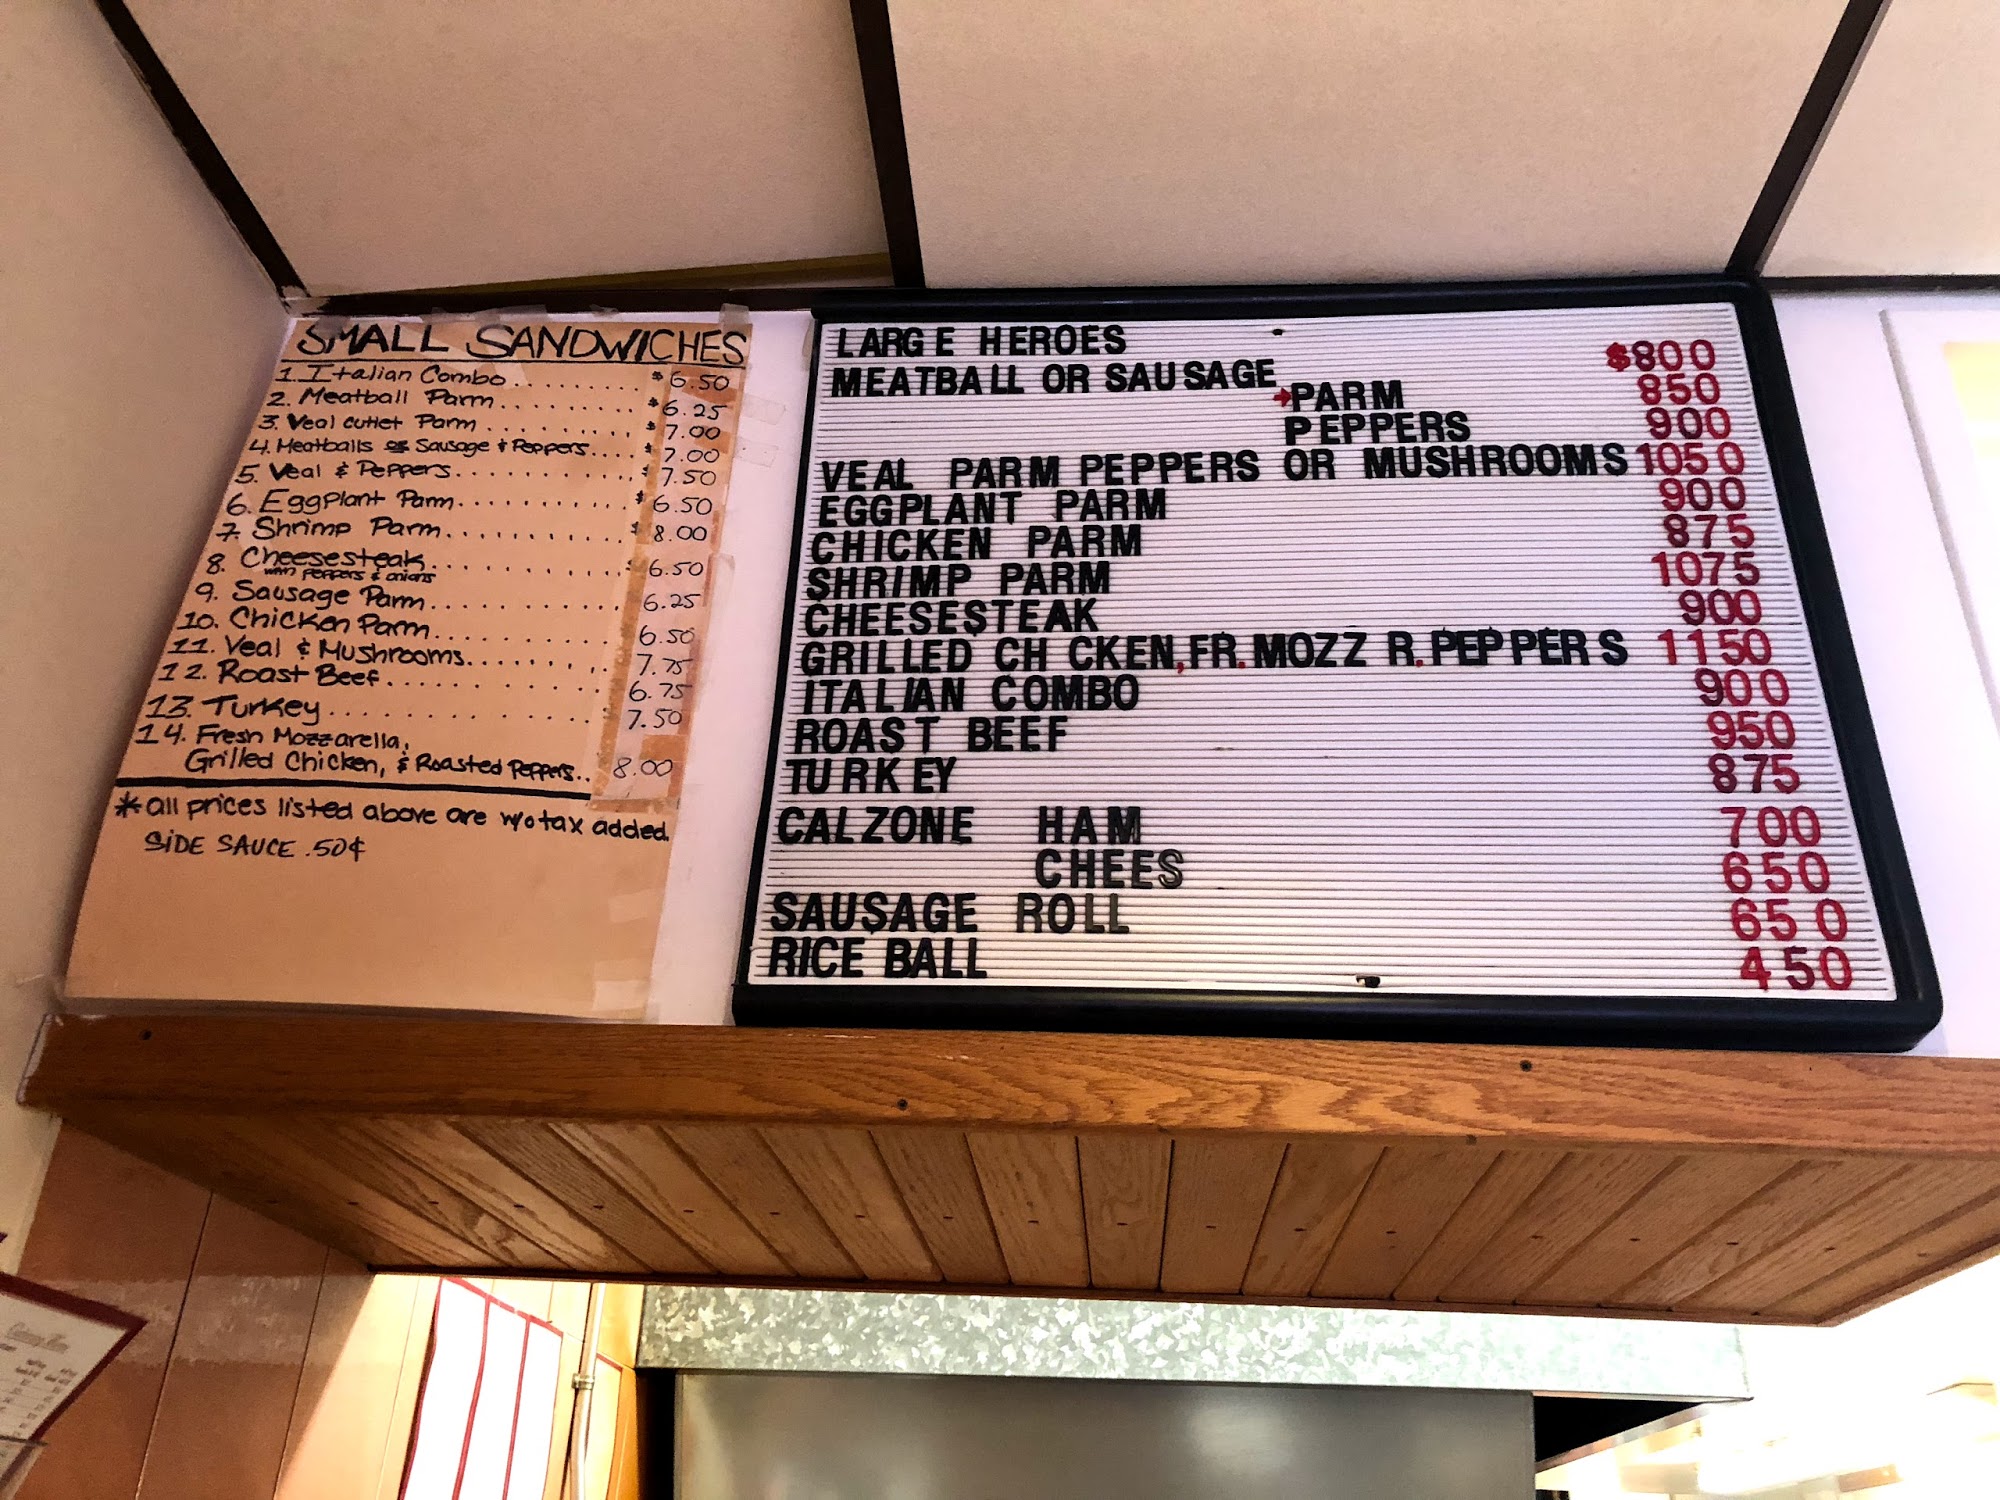 SMALL SANDWICHES
1. Italian Combo.......... $6.50
2. Meatball Parm.......... $6.25
3. Veal cutlet Parm.......... $7.00
4. Meatballs or Sausage & Peppers.... $7.00
5. Veal & Peppers.......... $7.50
6. Eggplant Parm.......... $6.50
7. Shrimp Parm.......... $8.00
8. Cheesesteak.......... $6.50
with peppers & onions
9. Sausage Parm.......... 6.25
10. Chicken Parm.......... 6.50
11. Veal & Mushrooms........ 7.75
12. Roast Beef.......... 6.75
13. Turkey.......... 7.50
14. Fresh Mozzarella,
Grilled Chicken, & Roasted Peppers.. 8.00
* all prices listed above are w/o tax added.
SIDE SAUCE .50¢
LARGE HEROES
MEATBALL OR SAUSAGE $800
PARM 850
PEPPERS 900
VEAL PARM PEPPERS OR MUSHROOMS 1050
EGGPLANT PARM 900
CHICKEN PARM 875
SHRIMP PARM 1075
CHEESESTEAK 900
GRILLED CH CKEN,FR.MOZZ R.PEPPERS 1150
ITALIAN COMBO 900
ROAST BEEF 950
TURKEY 875
CALZONE HAM 700
CHEES 650
SAUSAGE ROLL 650
RICE BALL 450